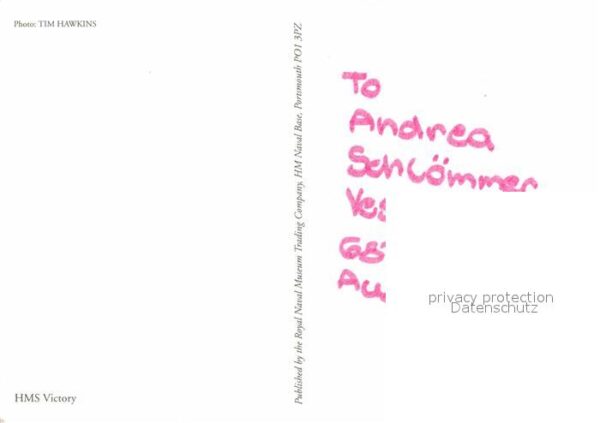 Photo: TIM HAWKINS
HMS Victory
Published by the Royal Naval Museum Trading Company, HM Naval Base, Portsmouth PO1 3PZ
To
Andrea
Schlömmer
privacy protection
Datenschutz